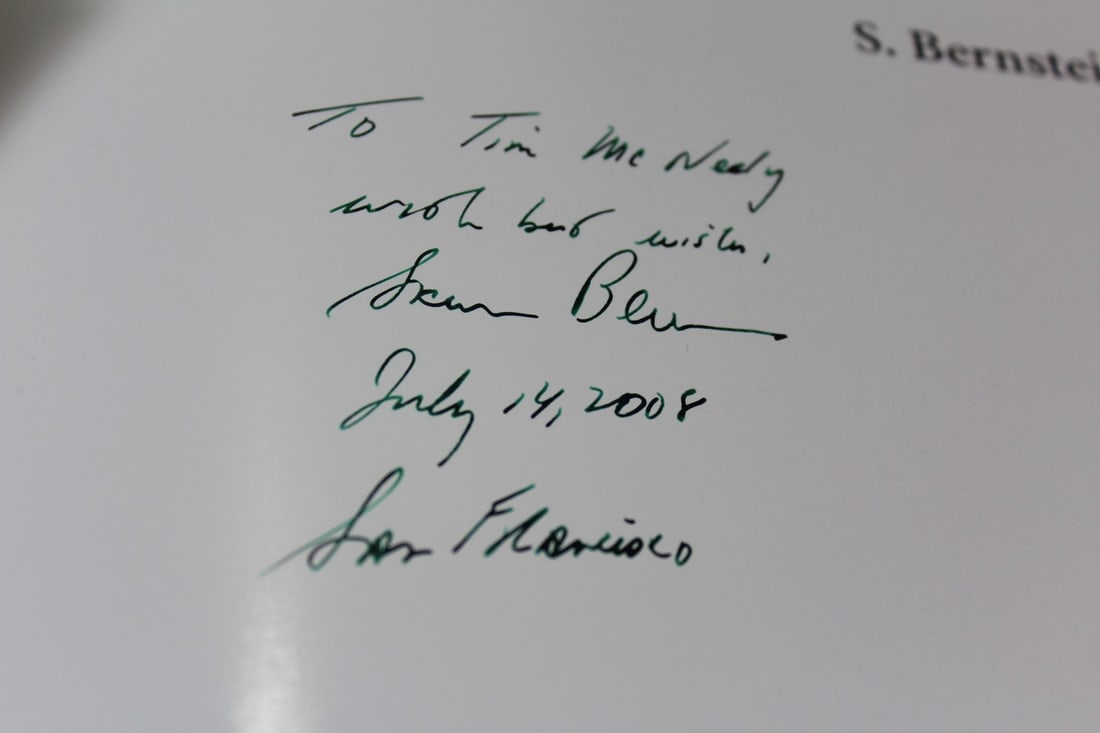 S. Bernstei
To Tim McNeely
with best wishes,
July 14, 2008
San Francisco